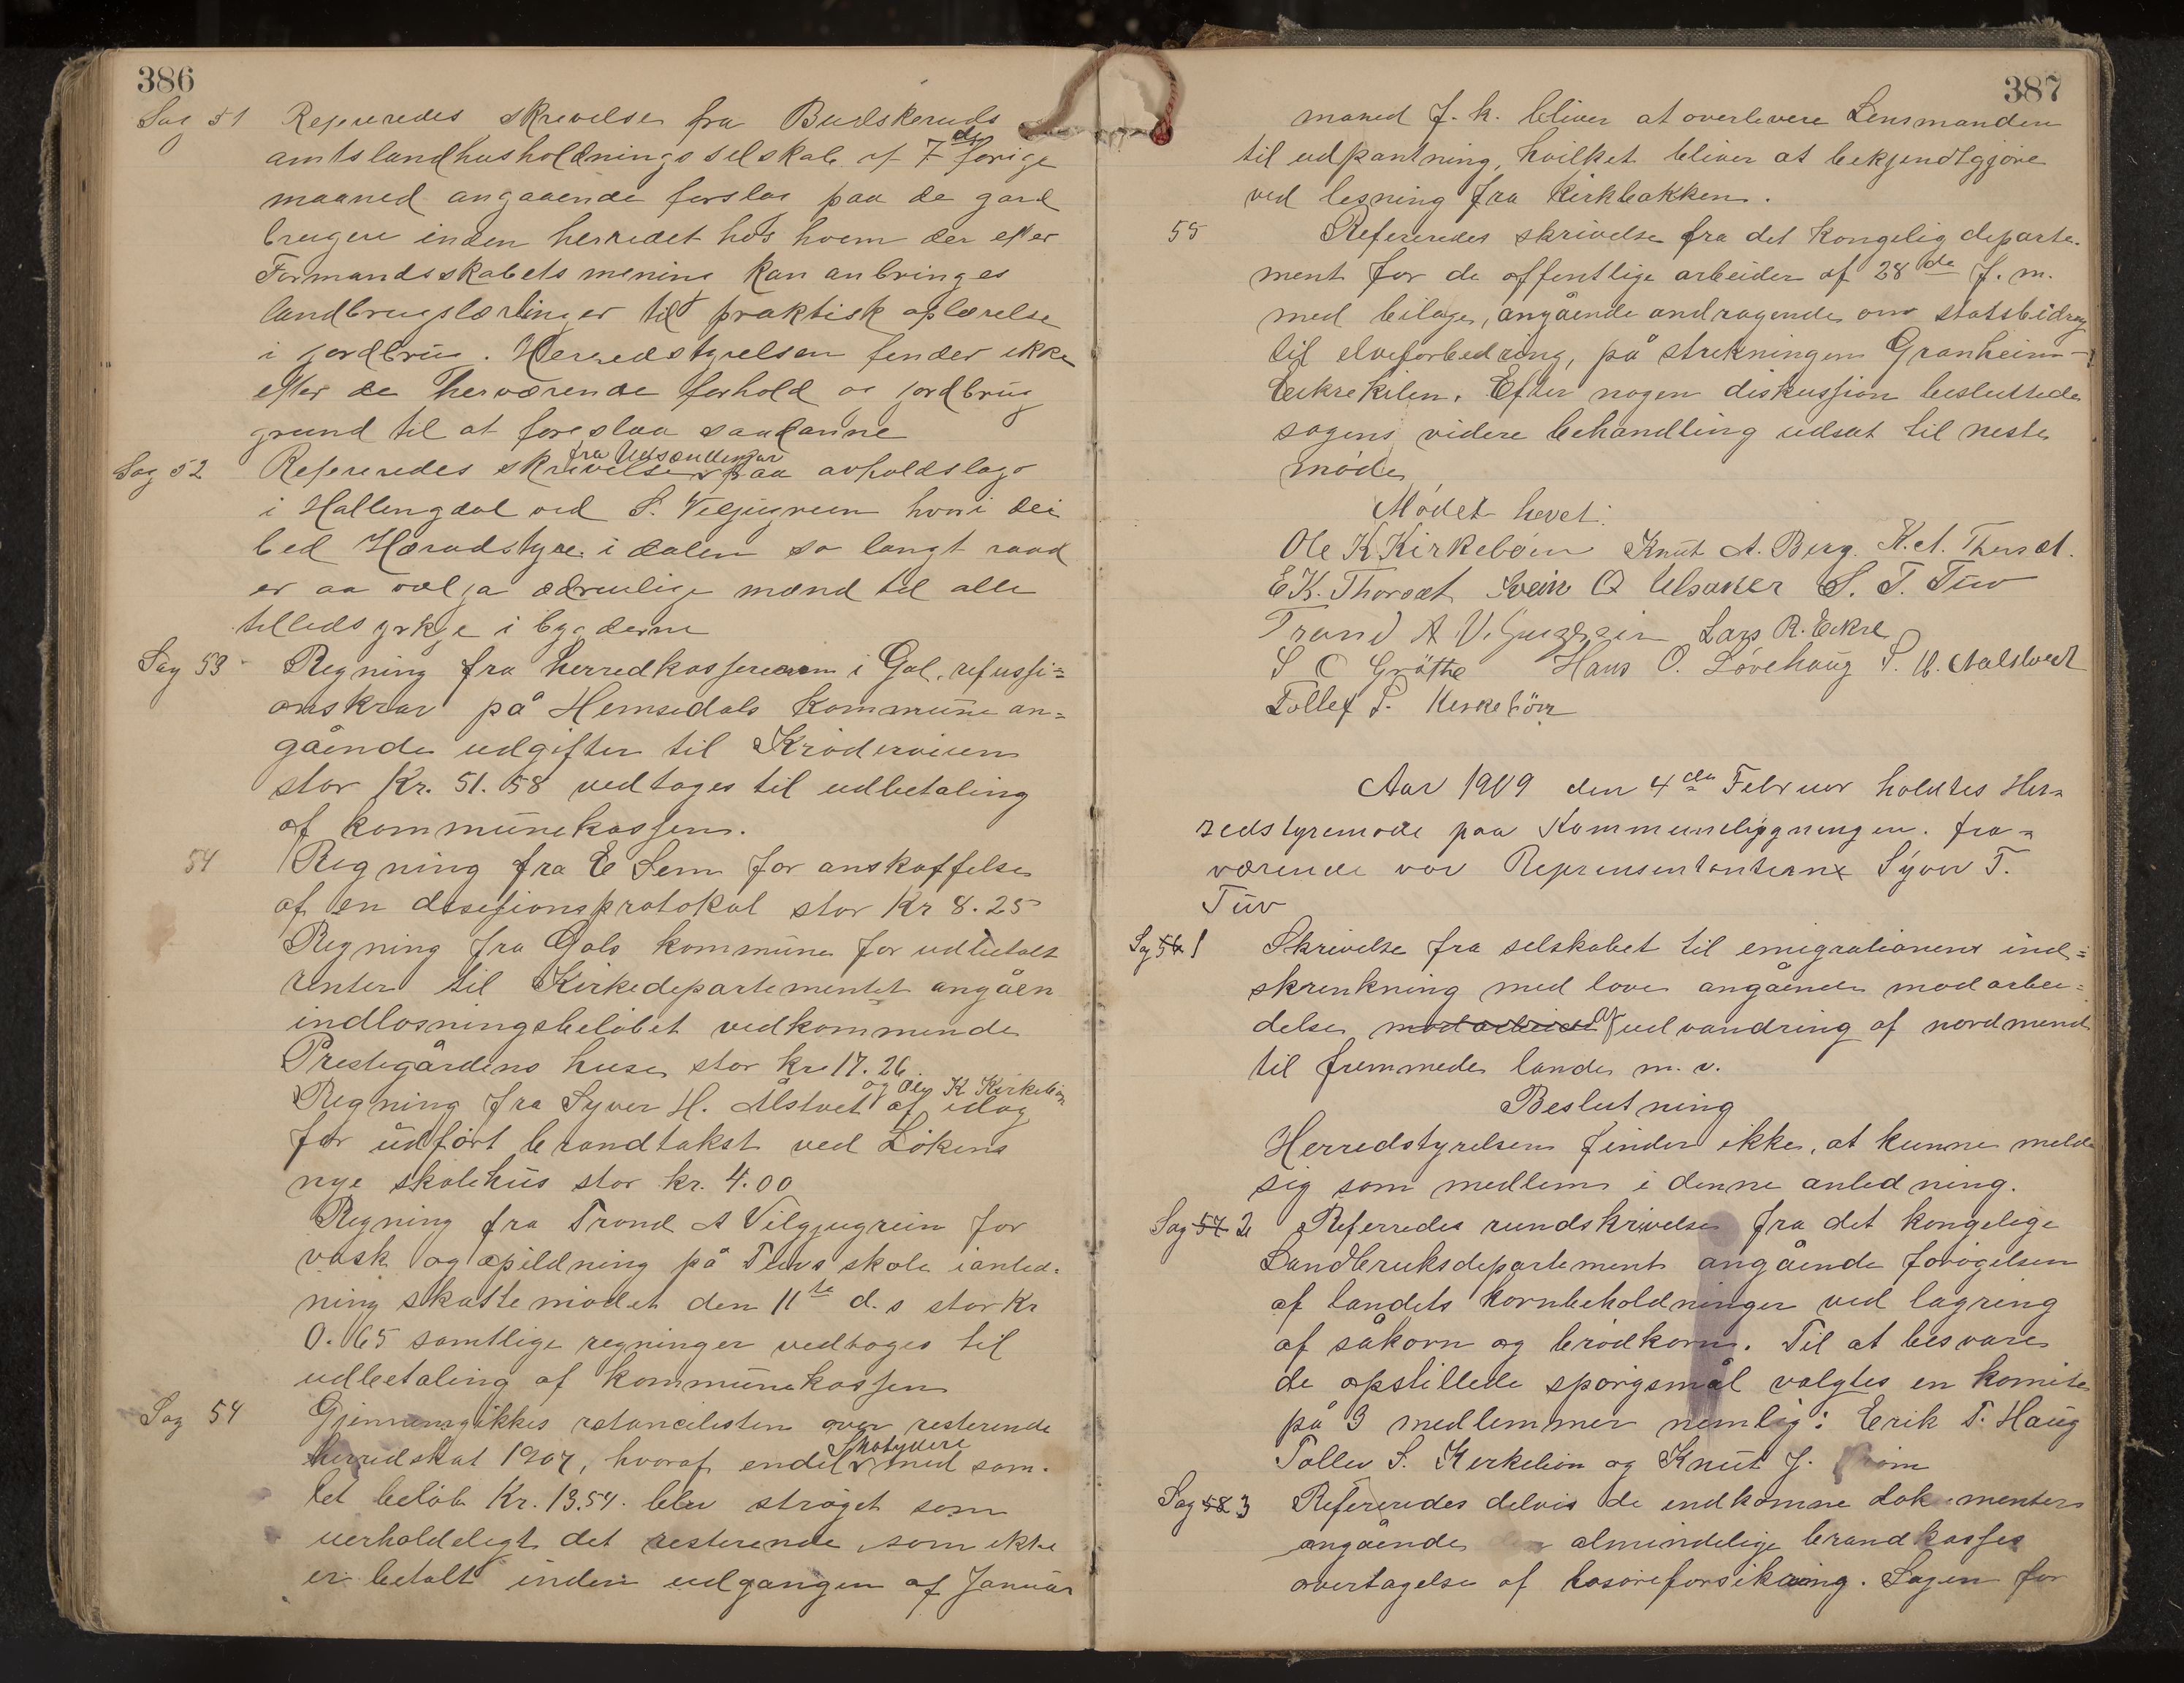 386
Sag 51 Refereredes skrivelse fra Budskeruds
amtslandhusholdningsselskab af 7 de forige
maaned angaaende forslag paa de gard
brugere inden herredet hos hvem der efter
Formandsskabets mening kan anbringes
landbrugslærlinger til praktisk oplærelse
i jordbrug. Herredstyrelsen finder ikke
efter de herværende forhold og jordbrug
grund til at foreslaa saadanne
Sag 52 Refereredes skrivelse fra Udsendinger paa avholdslag
i Hallingdal ved S. Veljugrein hvori dei
bed Heradstyre i dalen so langt raad
er aa velja ædruelige mænd til alle
tilledsyrkje i bygderne
Sag 53 Regning fra herredkassereren i Gol, refussi=
onskrav på Hemsedals kommune an=
gående udgifter til Kröderveien
stor Kr. 51.58 vedtages til udbetaling
af kommunekassen.
54 Regning fra E Sem for anskaffelse
af en desisionsprotokol stor Kr 8.25
Regning fra Gols kommune for udbetalt
renter til Kirkedepartementet angåen
indlosningsbelöbet vedkommende
Prestegårdens huse stor kr. 17.26.
Regning fra Syver H. Ålstvet og Ole K Kirkebön af idag
for udfört brandtakst ved Lökens
nye skolehus stor kr. 4.00
Regning fra Trond A Vilgjugrein for
vask og opildning på Tuvs skole i anled-
ning skattemödet den 11te d.s stor Kr
0.65 samtlige regninger vedtoges til
udbetaling af kommunekassen
Sag 54 Gjennemgikkes restancelisten over resterende
herredskat 1907, hvoraf endel Skatydere med sam-
let belöb Kr. 13.54. blev ströget som
uerholdeligt det resterende, som ikke
er betalt inden udgangen af Januar
387
maned f. k. bliver at overlevere Lensmanden
til udpantning, hvilket bliver at bekjendtgjöre
ved lesning fra Kirkbakken.
55 Refereredes skrivelse fra det kongelig departe-
ment for de offentlige arbeider af 28de f. m.
med bilage, angående andragende om statsbidrag
til elveforbedring, på strekningen Granheim-
Eikrekilen. Efter nogen diskussion besluttedes
sagens videre behandling udsat til neste
möde
Mödet hevet.
Ole K Kirkeböen Knut A. Berg. K. A. Thorset.
E K. Thorset Svein O Ulsaker S. T. Tuv
Trond A Viljugrein Lars R. Eikre
S O Gröthe Hans O. Lövehaug S. H. Aalstvedt
Tollef S. Kirkebön
Aar 1909 den 4de Februar holdtes Her=
redstyremöde paa Kommuneligningen. fra=
værende var Reprensentanterne Syver T.
Tuv
Sag 56 1 Skrivelse fra selskabet til emigrationens ind=
skrenkning med love angående modarbei=
delse modarbeide af udvandring af nordmend
til fremmede lande m. v.
Beslutning
Herredstyrelsen finder ikke, at kunne melde
sig som medlem i denne anledning.
Sag 57 2 Referredes rundskrivelse fra det kongelige
Landbruksdepartement angående forögelsen
af landets kornbeholdninger ved lagring
af såkorn og brödkorn. Til at besvare
de opstillede spörgsmål valgtes en komite
på 3 medlemmer nemlig: Erik T. Haug
Tollev S. Kirkebön og Knut J.
Sag 58 3 Refereredes delvis de indkomne dokumenter
angående den almindelige brandkasses
overtagelse af lösöreforsikring. Sagen for